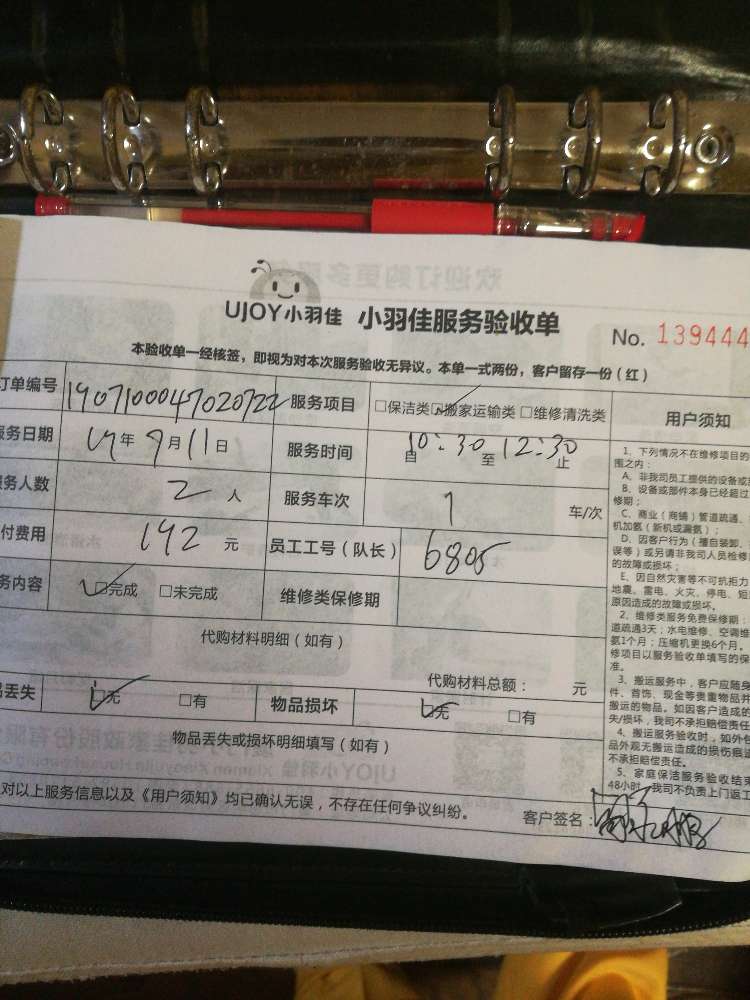 UJOY小羽佳 小羽佳服务验收单
No. 139444
本验收单一经核签，即视为对本次服务验收无异议。本单一式两份，客户留存一份（红）
订单编号 1907100047020722 服务项目 □保洁类 ☑搬家运输类 □维修清洗类 用户须知
服务日期 19年9月11日 服务时间 自10:30至12:30止
务人数 2人 服务车次 1 车/次
付费用 142元 员工工号（队长） 6805
务内容 ☑完成 □未完成 维修类保修期
代购材料明细（如有）
代购材料总额： 元
丢失 ☑无 □有 物品损坏 ☑无 □有
物品丢失或损坏明细填写（如有）
对以上服务信息以及《用户须知》均已确认无误，不存在任何争议纠纷。
客户签名：
1、下列情况不在维修项目的
围之内：
A、非我司员工提供的设备或
B、设备或部件本身已经超过
修期；
C、商业（商铺）管道疏通、
机加氨（新机或漏氨）；
D、因客户行为（擅自装卸、
误等）或另请非我司人员检修
的故障或损坏；
E、因自然灾害等不可抗力
地震、雷电、火灾、停电、短
原因造成的故障或损坏。
2、维修类服务免费保修期：
道疏通3天；水电维修、空调维
氨1个月；压缩机更换6个月。
修项目以服务验收单填写的保
准。
3、搬运服务中，客户应随身
件、首饰、现金等贵重物品并
搬运的物品。如因客户造成的
失/损坏，我司不承担赔偿责任
4、搬运服务验收时，如外包
品外观无搬运造成的损伤痕迹
不承担赔偿责任。
5、家庭保洁服务验收结束
48小时，我司不负责上门返工